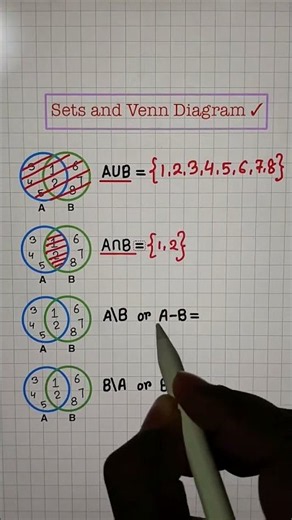 Sets and Venn Diagram ✓
3 1 6
4 2 7
5 8
A B
A∪B = {1,2,3,4,5,6,7,8}
3 1 6
4 2 7
5 8
A B
A∩B = {1,2}
3 1 6
4 2 7
5 8
A B
A\B or A-B =
3 1 6
4 2 7
5 8
A B
B\A or